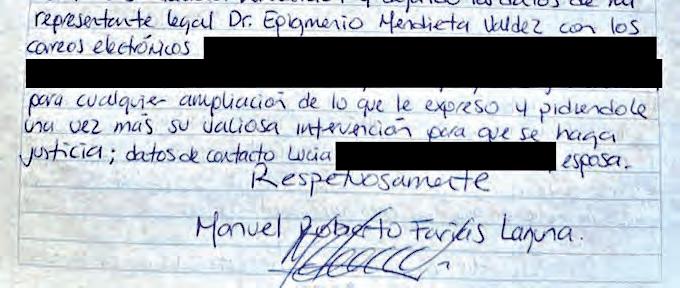 representante legal Dr. Epigmenio Mendieta Valdez con los
correos electrónicos
para cualquier ampliación de lo que le expreso y pidiendole
una vez más su valiosa intervención para que se haga
justicia; datos de contacto Lucia esposa.
Respetuosamente
Manuel Roberto Farías Laguna.